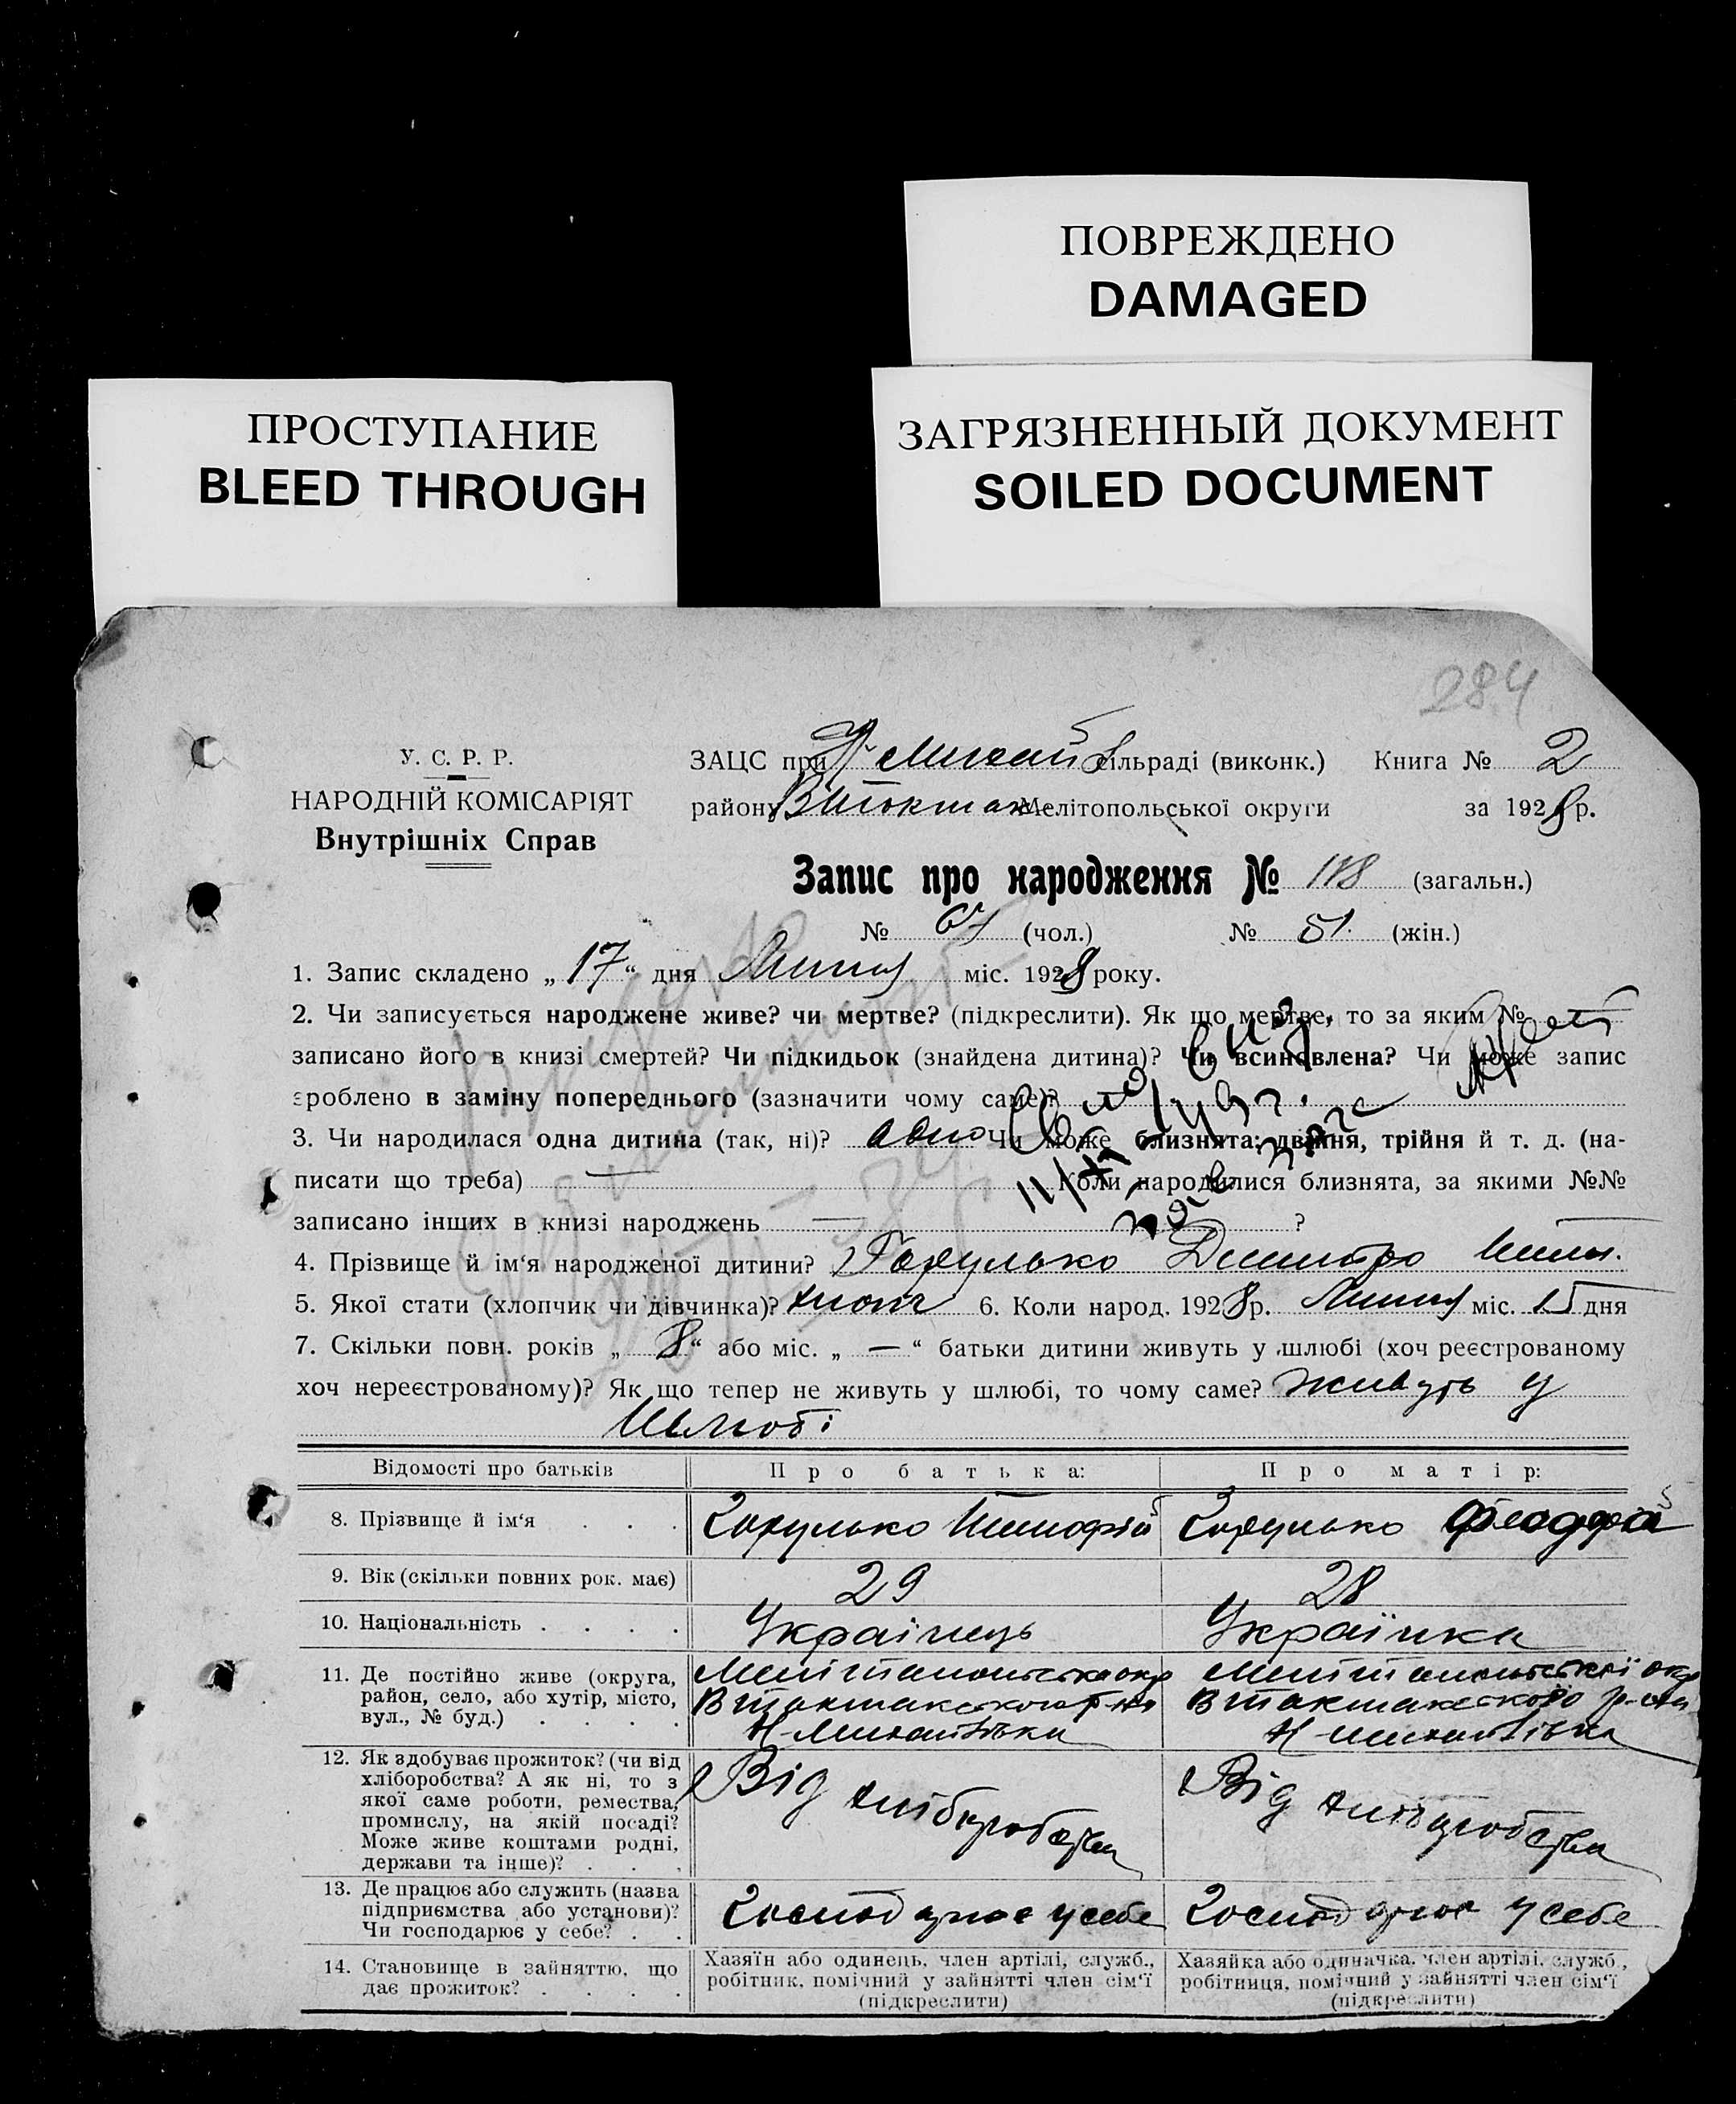 ПОВРЕЖДЕНО
DAMAGED
ПРОСТУПАНИЕ
BLEED THROUGH
ЗАГРЯЗНЕННЫЙ ДОКУМЕНТ
SOILED DOCUMENT
284
У. С. Р. Р.
НАРОДНІЙ КОМІСАРІЯТ
Внутрішніх Справ
ЗАЦС при Н-Михай сільраді (виконк.) Книга № 2
району В Токмак Мелітопольської округи за 1928 р.
Запис про народження № 118 (загальн.)
№ 67 (чол.) № 51. (жін.)
1. Запис складено „ 17 “ дня Липня міс. 1928 року.
2. Чи записується народжене живе? чи мертве? (підкреслити). Як що мертве, то за яким №
записано його в книзі смертей? Чи підкидьок (знайдена дитина)? Чи всиновлена? Чи може запис
зроблено в заміну попереднього (зазначити чому саме)?
3. Чи народилася одна дитина (так, ні)? одно Чи може близнята: двійня, трійня й т. д. (на-
писати що треба) — Коли народилися близнята, за якими №№
записано інших в книзі народжень — ?
4. Прізвище й ім‘я народженої дитини? Гарулько Дмитро Тим.
5. Якої стати (хлопчик чи дівчинка)? хлопч 6. Коли народ. 1928 р. Липня міс. 15 дня
7. Скільки повн. років „ 8 “ або міс. „ — “ батьки дитини живуть у шлюбі (хоч реєстрованому
хоч нереєстрованому)? Як що тепер не живуть у шлюбі, то чому саме? живуть у
Шлюбі
Відомості про батьків Про батька: Про матір:
8. Прізвище й ім‘я . . . Гарулько Тимофій Гарулько
9. Вік (скільки повних рок. має) 29 28
10. Національність . . . . Українець Українка
11. Де постійно живе (округа, район, село, або хутір, місто, вул., № буд.) . . . . Мелітопольська окр В Токмакського р-на Н-Михайлівка Мелітопольської окр В Токмакского р-на Н-Михайлівка
12. Як здобуває прожиток? (чи від хліборобства? А як ні, то з якої саме роботи, ремества, промислу, на якій посаді? Може живе коштами родні, держави та інше)? . . . Від хліборобства Від хліборобства
13. Де працює або служить (назва підприємства або установи)? Чи господарює у себе? . . Господарює у себе Господарює у себе
14. Становище в зайняттю, що дає прожиток? . . . . Хазяїн або одинець, член артілі, служб., робітник, помічний у зайнятті член сім‘ї (підкреслити) Хазяйка або одиначка, член артілі, служб., робітниця, помічний у зайнятті член сім‘ї (підкреслити)